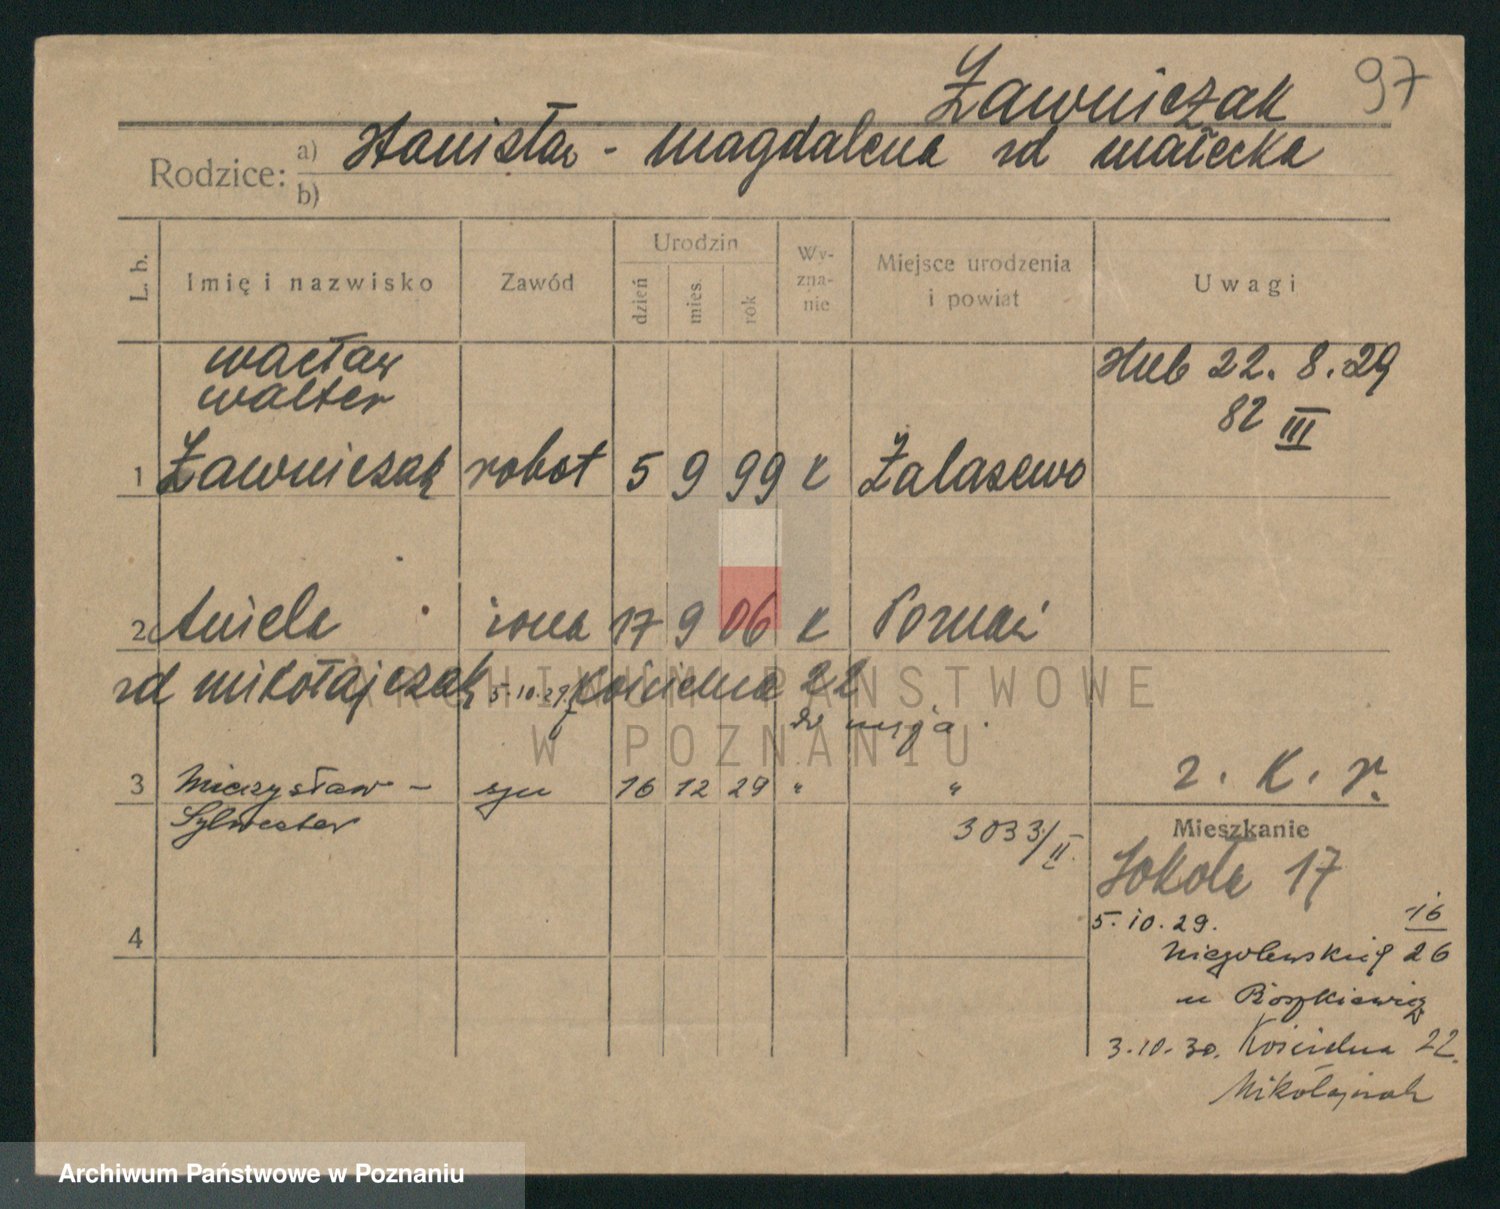 Żawniczak 97
Rodzice: a) Stanisław - Magdalena rd Małecka
b)
L. b. Imię i nazwisko Zawód Urodzin dzień mies. rok Wy-zna-nie Miejsce urodzenia i powiat Uwagi
Wacław
Walter
1 Żawniczak robot 5 9 99 k Zalasewo
Slub 22. 8. 29
82 III
2 Aniela żona 17 9 06 k Poznań
rd Mikołajczak 5.10.29. Kościelna 22
3 Mieczysław - syn 16 12 29 " "
Sylwester
3033/II.
2. K. r.
ARCHIWUM PAŃSTWOWE
W POZNANIU
Mieszkanie
Sokoła 17
5. 10. 29. 16
Niegolewskich 26
u
3.10.30. Kościelna 22.
4
Archiwum Państwowe w Poznaniu